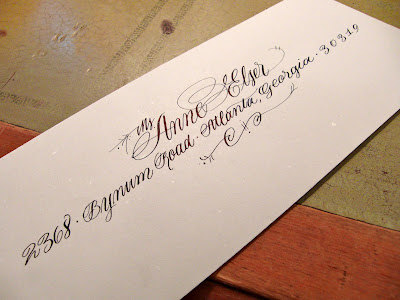 Ms
Anne Elzer
2368 · Bynum Road · Atlanta, Georgia · 30319